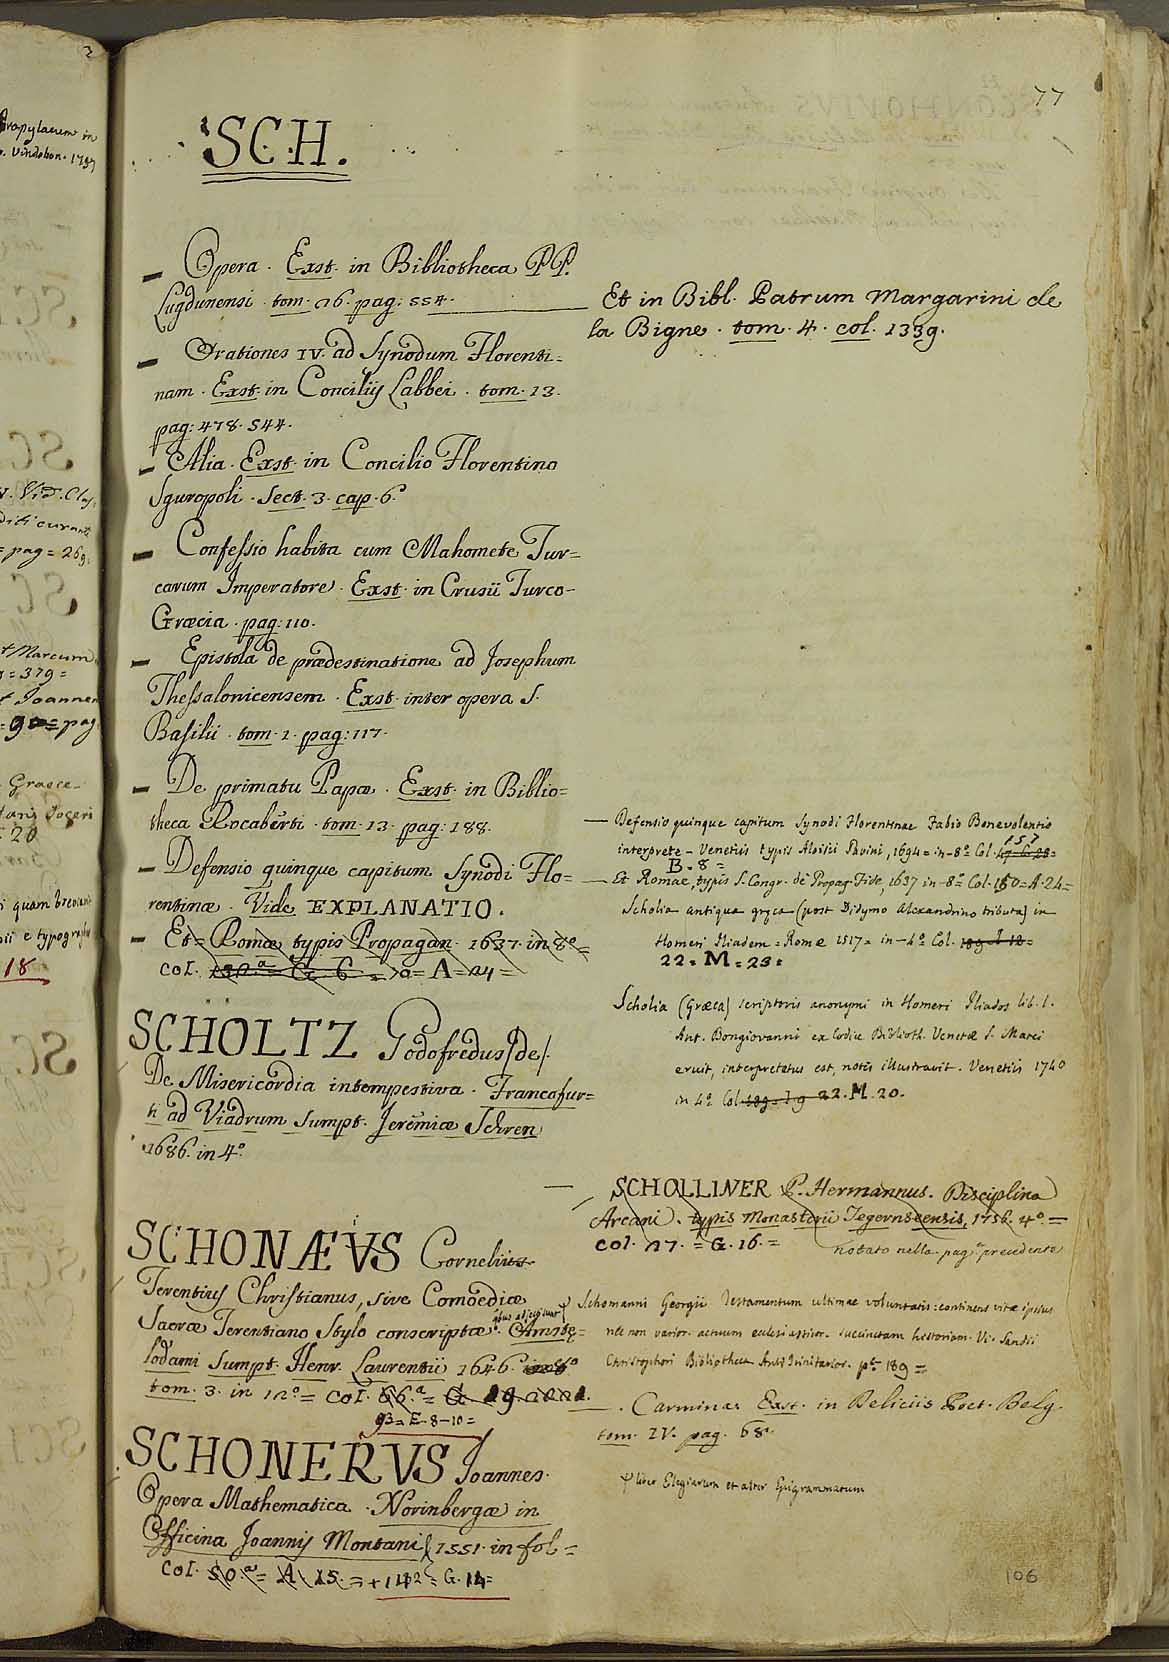 77
SCH.
— Opera. Exst. in Bibliotheca PP.
Lugdunensi tom. 26. pag: 554.
— Orationes IV. ad Synodum Florenti=
nam. Exst. in Concilijs Labbei. tom. 13.
pag: 478. 544.
— Alia. Exst. in Concilio Florentino
Sguropoli. Sect. 3. cap. 6.
— Confessio habita cum Mahomete Tur=
carum Imperatore. Exst. in Crusii Turco-
Græcia. pag: 110.
— Epistola de prædestinatione ad Josephum
Thessalonicensem. Exst. inter opera S.
Basilii. tom. 2. pag: 117.
— De primatu Papæ. Exst. in Biblio=
theca Rocaberti. tom. 13. pag: 188.
— Defensio quinque capitum Synodi Flo=
rentinæ. Vide EXPLANATIO.
— Et= Romæ typis Propagan. 1637. in 8º =
Col. = 70= A= 24=
SCHOLTZ Godofredus (de).
De Misericordia intempestiva. Francofur=
ti ad Viadrum sumpt. Jeremiæ Schren
1686. in 4º.
SCHONÆVS Cornelius
Terentius Christianus, sive Comœdiæ
Sacræ Terentiano Stylo conscriptæ. quibus adjiciuntur Amste=
lodami sumpt. Henr. Laurentii 1646. in 8º
tom. 3. in 12º= Col. 66.ª= G.
93= E- 8-10=
SCHONERVS Joannes.
Opera Mathematica. Norinbergæ in
Officina Joannis Montani 1551. in fol=
Col. 50.ª= A. 15.=+142= G. 14=
Et in Bibl. Patrum Margarini de
la Bigne. tom. 4. col. 1339.
— Defensio quinque capitum Synodi Florentinae Fabio Benevolentio
interprete - Venetiis typis Aloisii Pavini, 1694= in-8º Col. 157
B. 8=
— Et Romae, typis S. Congr. de Propag. Fide, 1637 in-8º Col. 160= A. 24=
Scholia antiqua græca (post Didymo Alexandrino tributa) in
Homeri Iliadem= Romæ 1517= in-4º Col. 189 I 12=
22. M. 23.
Scholia (Græca) scriptoris anonymi in Homeri Iliados lib. I.
Ant. Bongiovanni ex Codice Biblioth. Venetæ S. Marci
eruit, interpretatus est, notis illustravit. Venetiis 1740
in 4º Col. 189. I 9 22. M. 20.
— SCHOLLINER P. Hermannus. Disciplina
Arcani. typis Monasterii Tegernseensis, 1756. 4º. =
Col. 27. = G. 16. = notato nella pag.ª precedente
Schomanni Georgii Testamentum ultimae voluntatis: continens vitæ ipsius
nec non varior. actuum ecclesiasticor. succinctam historiam. V. Sandii
Christophori Bibliotheca AntiTrinitarior. p.ª 189=
— Carmina. Exst. in Deliciis Poet. Belg.
tom. IV. pag. 68.
liber Elegiarum et alter Epigrammatum
106